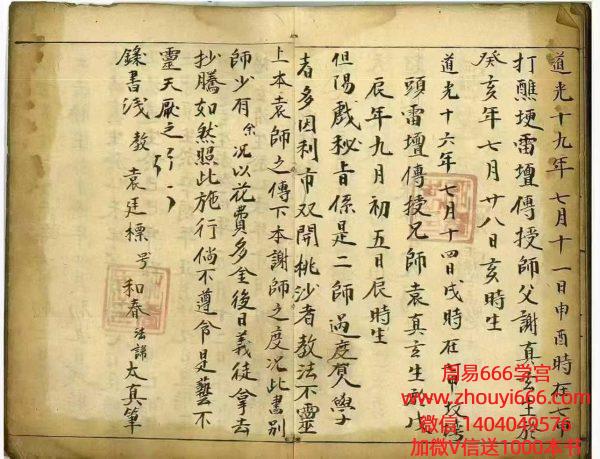 道光十九年七月十一日申酉時在七甲
打醮埂雷壇傳授師父謝真玄生於
癸亥年七月廿八日亥時生
道光十六年七月十四日戌時在
頭雷壇傳授兄師袁真玄生於戊
辰年九月初五日辰時生
但陽戲秘旨係是二師過度賀學
者多因利市双開桃沙者教法不靈
上本袁師之傳下本謝師之度况此書别
師少有余况以花費多金後日義徒拿去
抄騰如然照此施行倘不遵令是藝不
靈天厭之
錄書浅教袁廷標号和春法諱太真筆
周易666学宫
www.zhouyi666.com
微信 1404049576
加微V信送1000本书